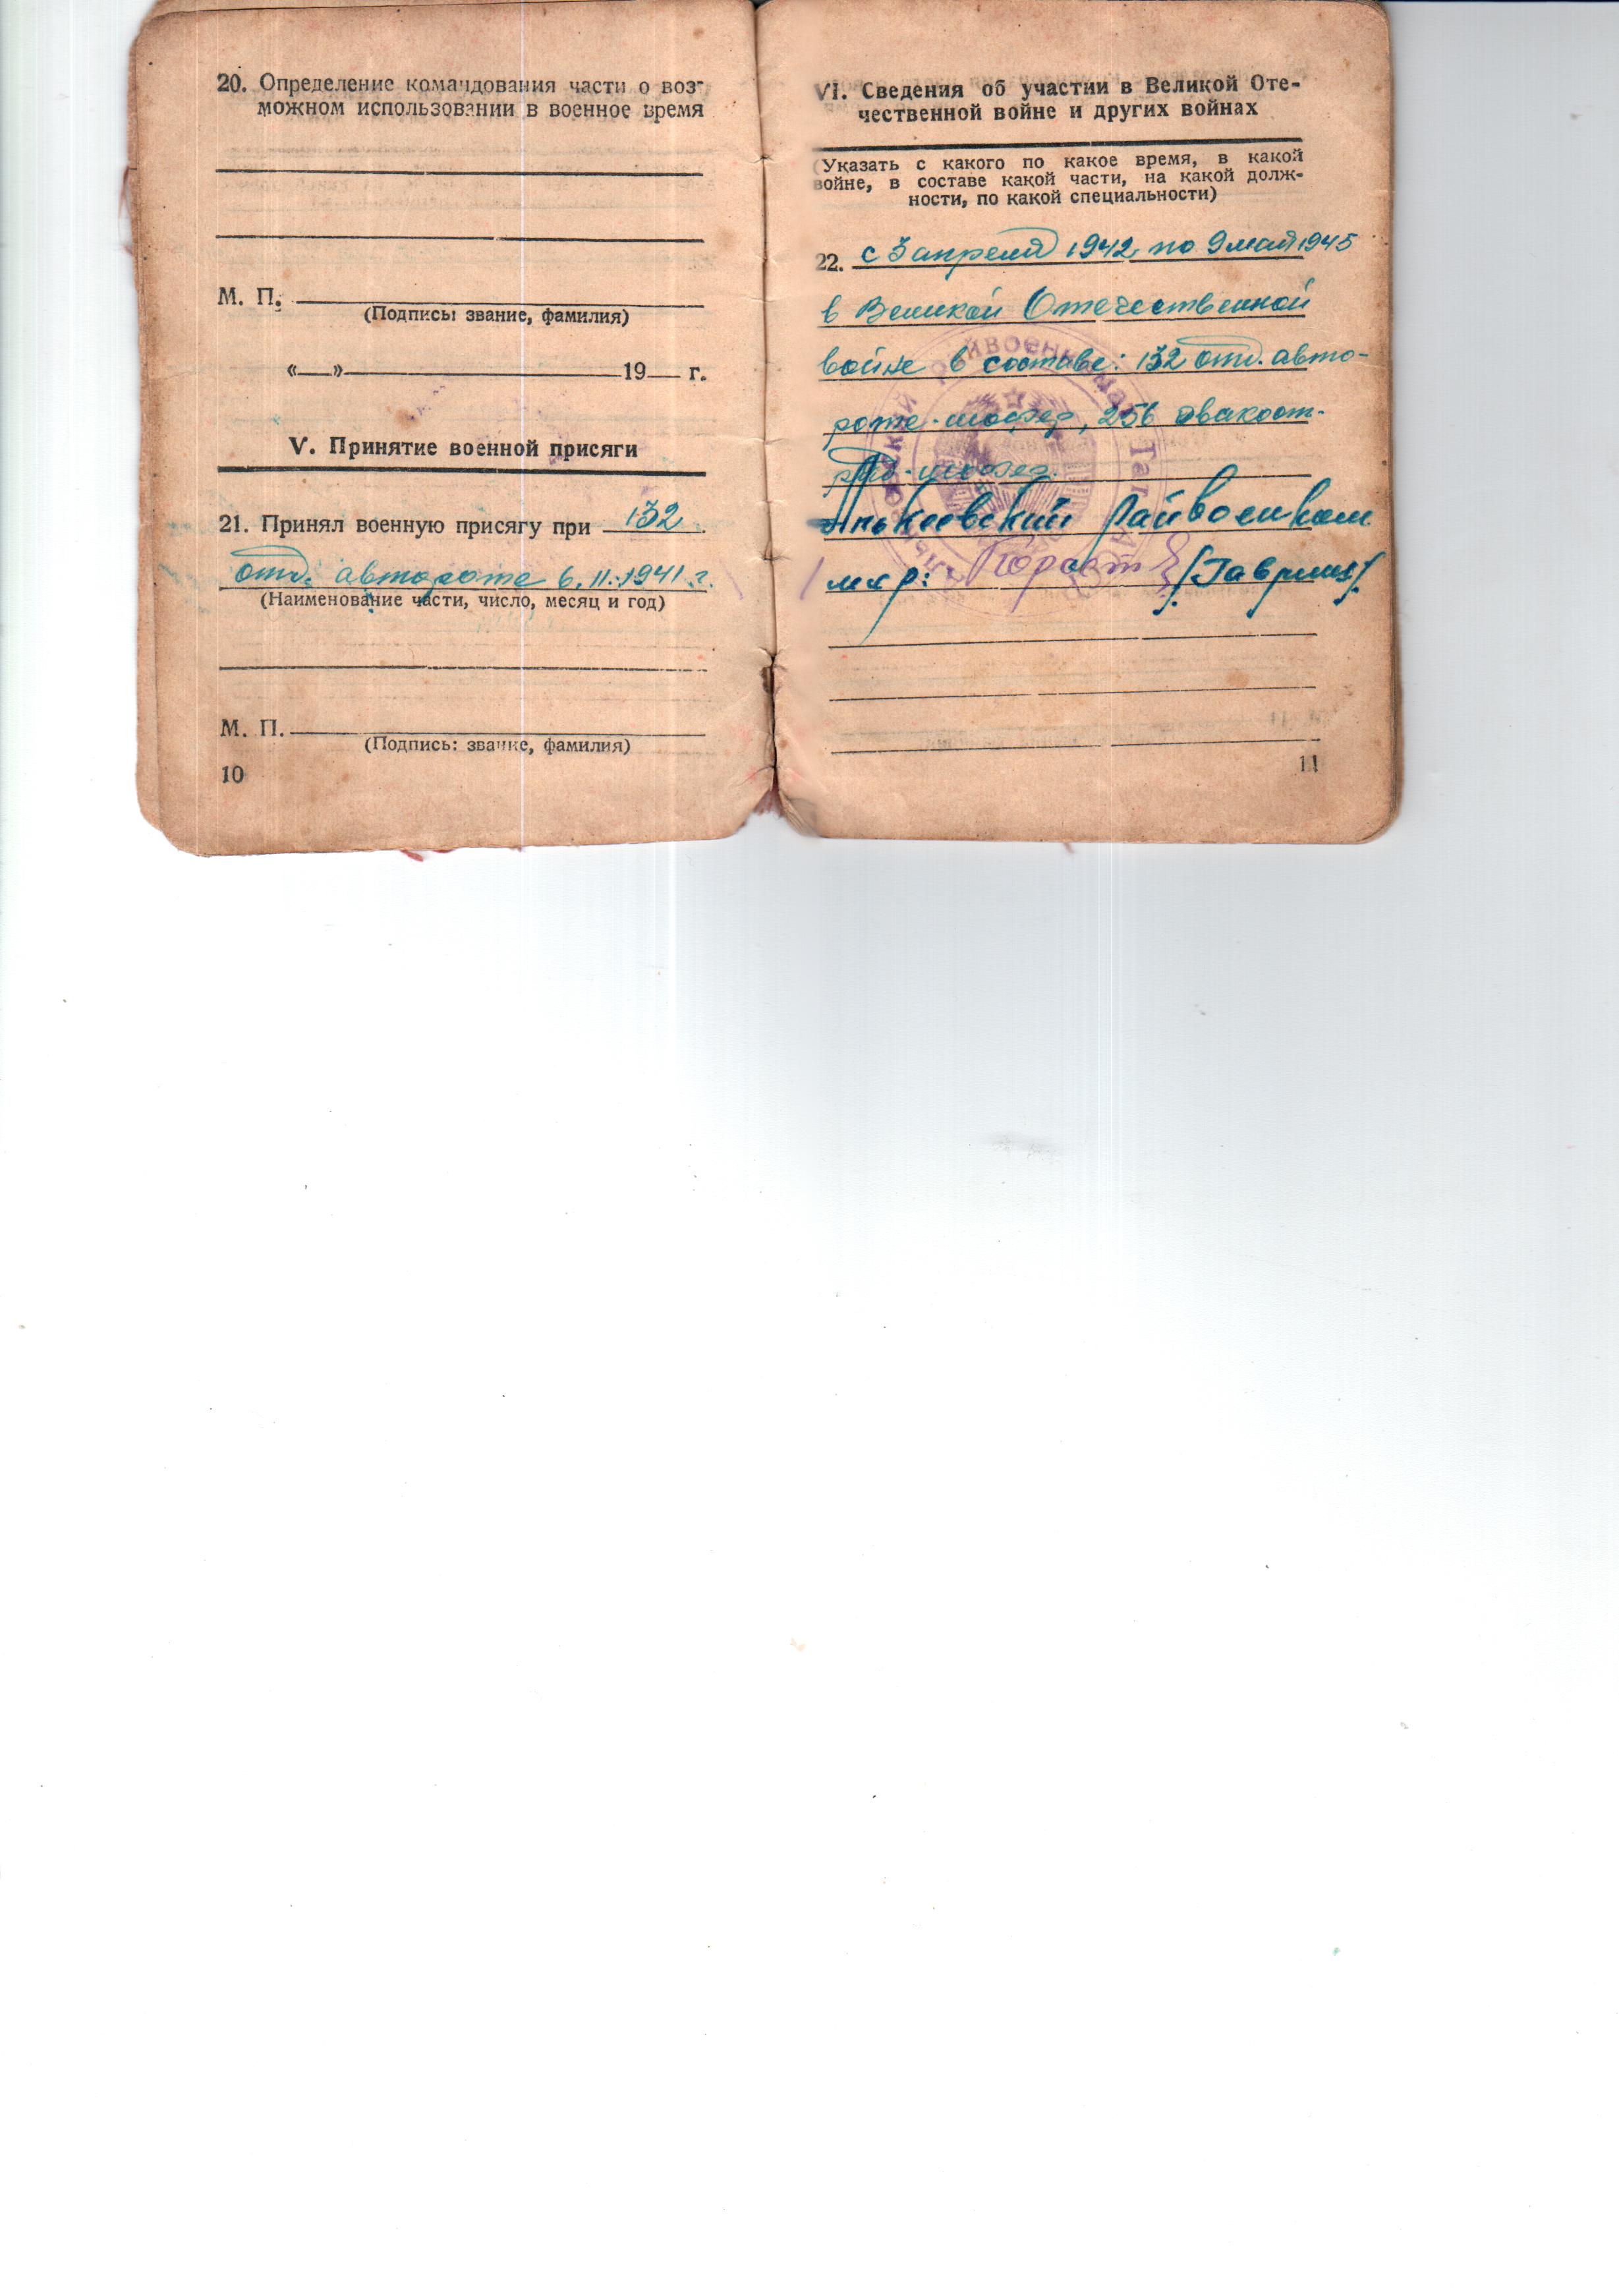 20. Определение командования части о воз-
можном использовании в военное время
М. П.
(Подпись: звание, фамилия)
«   »   19   г.
V. Принятие военной присяги
21. Принял военную присягу при 132
отд. автороте 6.11.1941 г.
(Наименование части, число, месяц и год)
М. П.
(Подпись: звание, фамилия)
10
VI. Сведения об участии в Великой Оте-
чественной войне и других войнах
(Указать с какого по какое время, в какой
войне, в составе какой части, на какой долж-
ности, по какой специальности)
22. с 3 апреля 1942 по 9 мая 1945
в Великой Отечественной
войне в составе: 132 отд. авто-
роте - шофер, 256 эвакоот-
ряд - шофер.
Алькеевский Райвоенком
м-р:
11